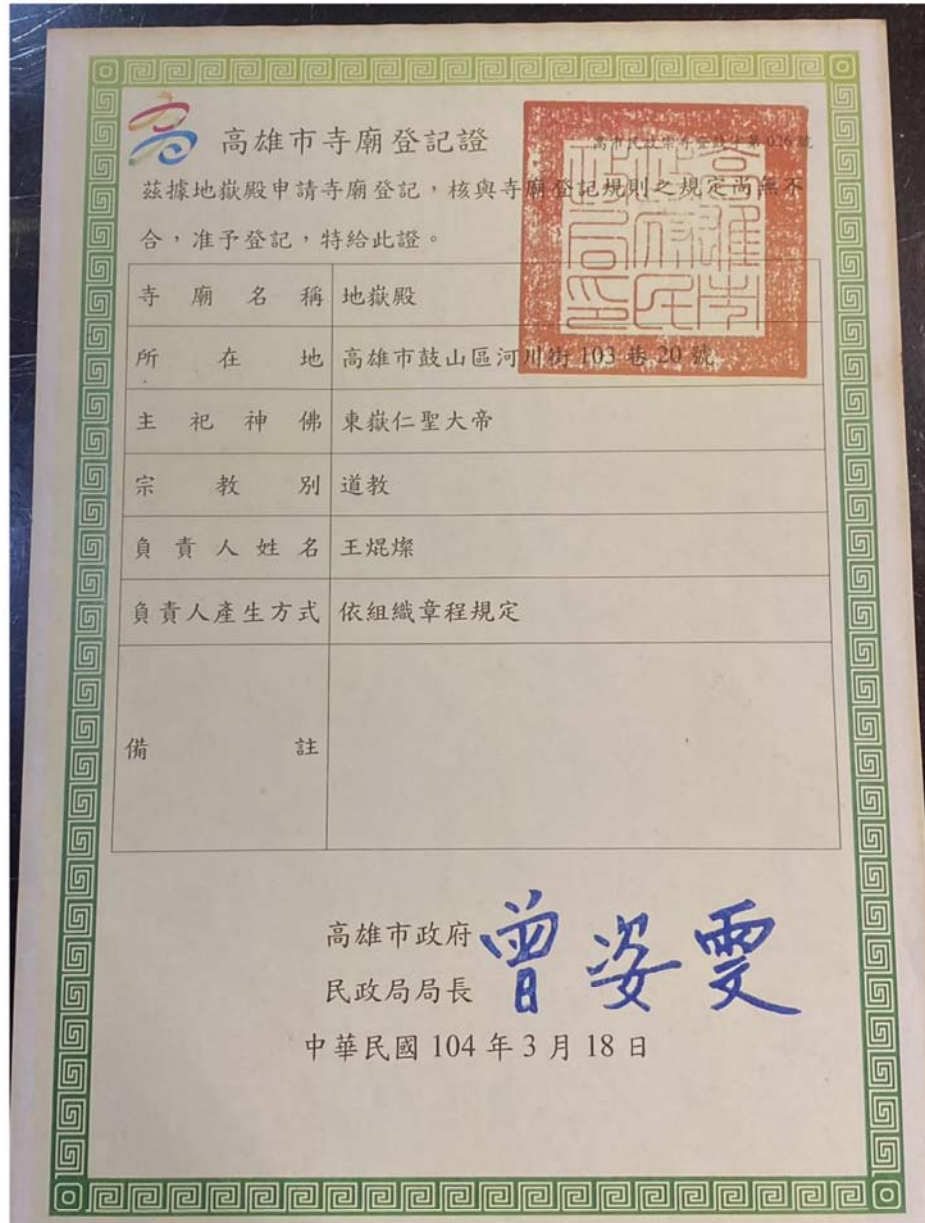 高雄市寺廟登記證
高市民政宗寺登證字第 026 號
茲據地嶽殿申請寺廟登記，核與寺廟登記規則之規定尚無不
合，准予登記，特給此證。
寺廟名稱 地嶽殿
所在地 高雄市鼓山區河川街 103 巷 20 號
主祀神佛 東嶽仁聖大帝
宗教別 道教
負責人姓名 王焜燦
負責人產生方式 依組織章程規定
備註
高雄市政府
民政局局長 曾姿雯
中華民國 104 年 3 月 18 日
高雄市政府民政局印